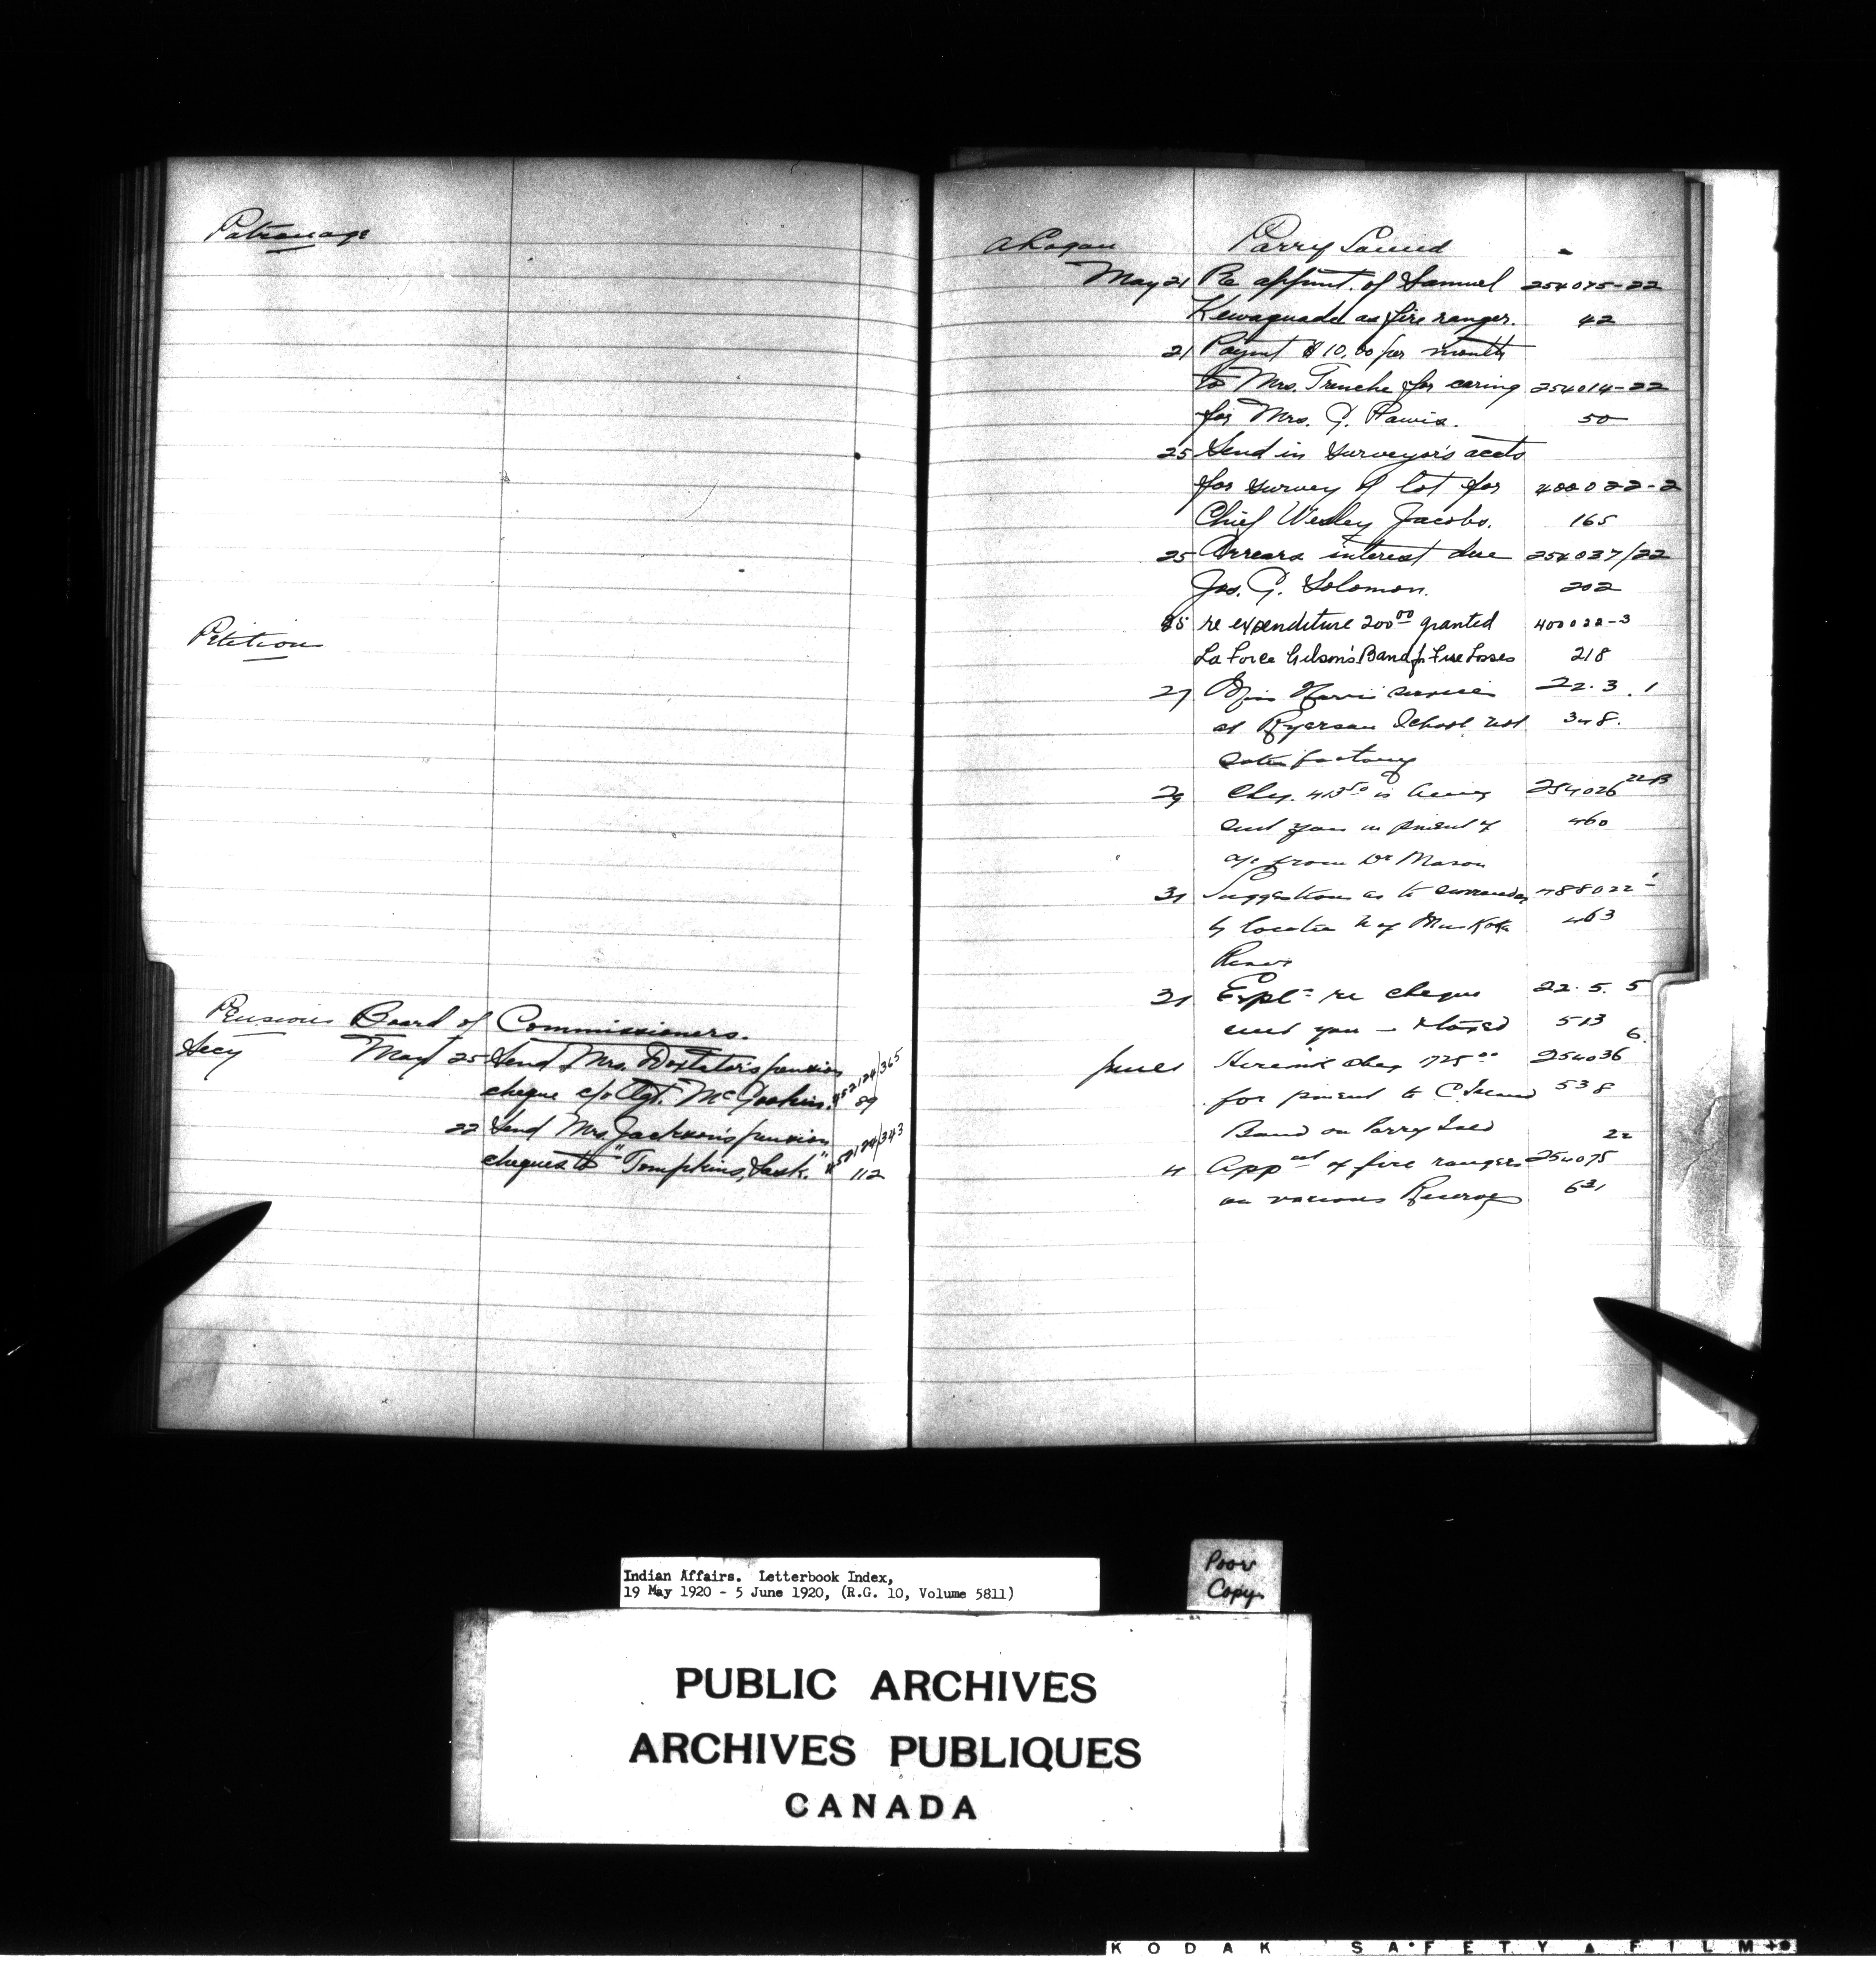 Patronage
Petitions
Pensions Board of Commissioners.
Secy May 25 Send Mrs. Doxtator's pension 52124/365
cheque c/o Agt. McGookin. 89
22 Send Mrs. Jackson's pension 52124/343
cheques to "Tompkins, Sask." 112
A Logan Parry Sound
May 21 Re appimt. of Samuel 254075-22
Kewaquado as fire ranger. 42
21 Paymt $10.00 per month
to Mrs. Trenche for caring 254014-22
for Mrs. G. Pawis. 50
25 Send in surveyor's accts
for survey of lot for 400022-2
Chief Wesley Jacobs. 165
25 Arrears interest due 254037/22
Jos. G. Solomon. 202
25 re expenditure 200.00 granted 400022-3
La Force Gibson's Band for Fire Losses 218
27 Miss services 22.3.1
at Ryerson School not 348.
satisfactory
29 Chq. 413.50 is being 254026 22B
sent you in pment of 460
a/c from Dr Mason
31 Suggestions as to surrender 488022-1
by locatee N of Muskoka 463
31 Expl= re cheque 22.5.5
sent you 513
June 1 Herewith cheq 1725.00 254036 6.
for pment to C. Island 538
Band on Parry Isld
4 Appmt of fire rangers 254075 22
on various Reserves 631
Indian Affairs. Letterbook Index,
19 May 1920 - 5 June 1920, (R.G. 10, Volume 5811)
Poor
Copy
PUBLIC ARCHIVES
ARCHIVES PUBLIQUES
CANADA
KODAK SAFETY FILM